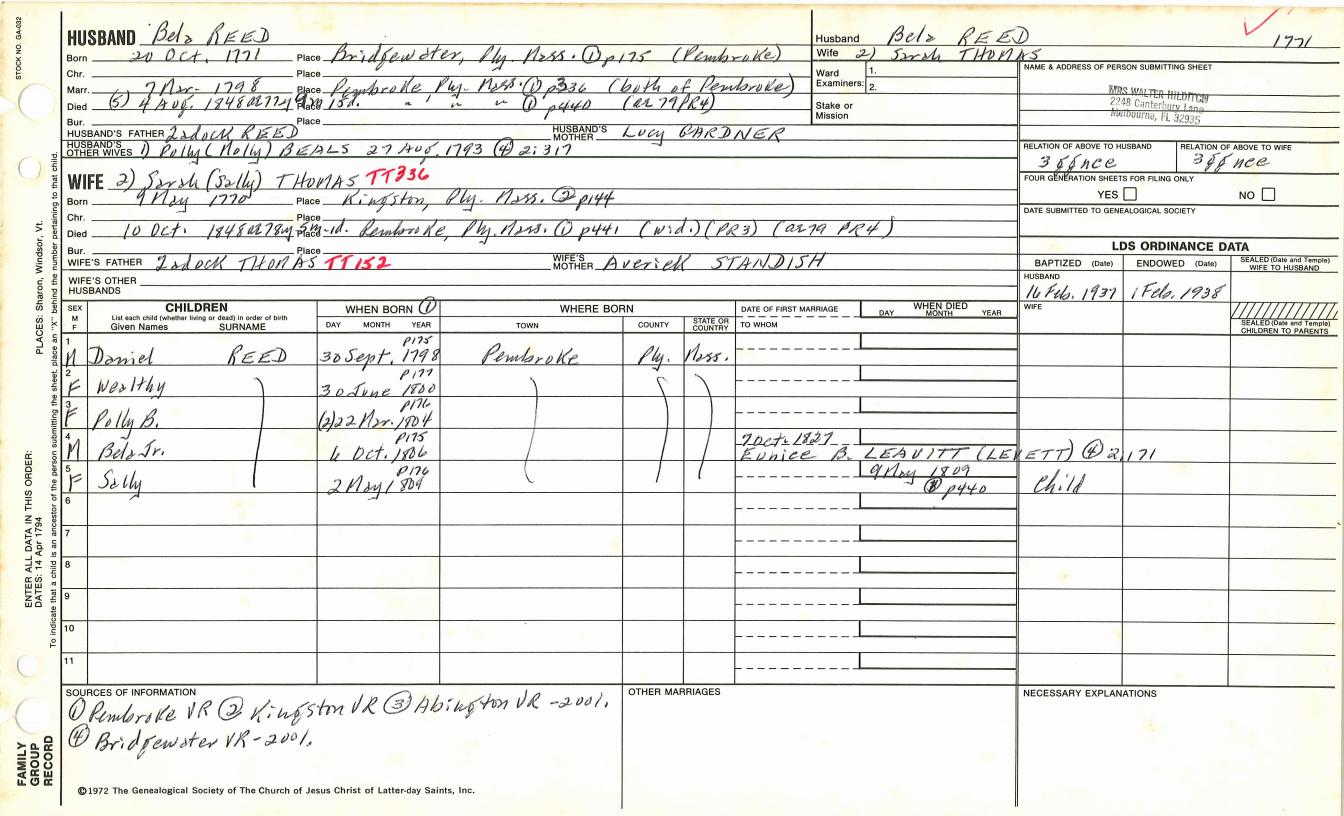 STOCK NO. GA-032
HUSBAND Bela REED
Born 20 Oct. 1771 Place Bridgewater, Ply. Mass. ① p175 (Pembroke)
Chr. Place
Marr. 7 Mar- 1798 Place Pembroke Ply. Mass. ① p336 (both of Pembroke)
Died (5) 4 Aug. 1848 Place " " " ① p440 (ae 79 PR4)
Bur. Place
HUSBAND'S FATHER Zadock REED HUSBAND'S MOTHER Lucy GARDNER
HUSBAND'S OTHER WIVES 1) Polly (Molly) BEALS 27 Aug. 1793 ④ 2:317
WIFE 2) Sarah (Sally) THOMAS TT336
Born 9 May 1770 Place Kingston, Ply. Mass. ② p144
Chr. Place
Died 10 Oct. 1848 ae 78y 5m -1d. Place Pembroke, Ply. Mass. ① p441 (wid.) (PR3) (ae 79 PR4)
Bur. Place
WIFE'S FATHER Zadock THOMAS TT152 WIFE'S MOTHER Averick STANDISH
WIFE'S OTHER HUSBANDS
Husband Bela REED 1771
Wife 2) Sarah THOMAS
Ward Examiners: 1.
2.
Stake or Mission
NAME & ADDRESS OF PERSON SUBMITTING SHEET
MRS WALTER HILDITCH
2248 Canterbury Lane
Melbourne, FL 32935
RELATION OF ABOVE TO HUSBAND RELATION OF ABOVE TO WIFE
FOUR GENERATION SHEETS FOR FILING ONLY
YES NO
DATE SUBMITTED TO GENEALOGICAL SOCIETY
LDS ORDINANCE DATA
BAPTIZED (Date) ENDOWED (Date) SEALED (Date and Temple) WIFE TO HUSBAND
HUSBAND
16 Feb. 1937 1 Feb. 1938
WIFE
SEALED (Date and Temple) CHILDREN TO PARENTS
SEX M F
CHILDREN
List each child (whether living or dead) in order of birth
Given Names SURNAME
WHEN BORN ①
DAY MONTH YEAR
WHERE BORN
TOWN COUNTY STATE OR COUNTRY
DATE OF FIRST MARRIAGE
TO WHOM
WHEN DIED
DAY MONTH YEAR
1 M Daniel REED 30 Sept. 1798 p175 Pembroke Ply. Mass.
2 F Wealthy 30 June 1800 p177
3 F Polly B. (2)22 Mar. 1804 p176
4 M Bela Jr. 6 Oct. 1806 p175 7 Oct. 1827 Eunice B. LEAVITT (LEVETT) ④ 2,171
5 F Sally 2 May 1809 p176 9 May 1809 p440 Child
6
7
8
9
10
11
SOURCES OF INFORMATION
① Pembroke VR ② Kingston VR ③ Abington VR -2001.
④ Bridgewater VR -2001.
OTHER MARRIAGES
NECESSARY EXPLANATIONS
©1972 The Genealogical Society of The Church of Jesus Christ of Latter-day Saints, Inc.
FAMILY GROUP RECORD
ENTER ALL DATA IN THIS ORDER:
DATES: 14 Apr 1794
PLACES: Sharon, Windsor, Vt.
To indicate that a child is an ancestor of the person submitting the sheet, place an "X" behind the number pertaining to that child.